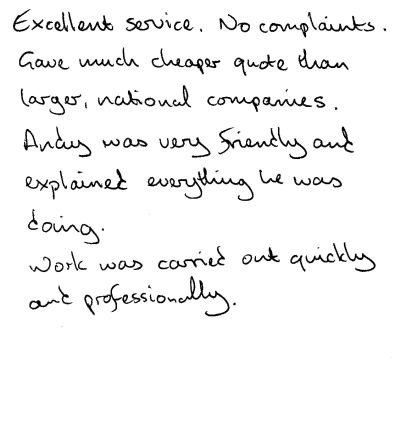 Excellent service. No complaints.
Gave much cheaper quote than
larger, national companies.
Andy was very friendly and
explained everything he was
doing.
Work was carried out quickly
and professionally.